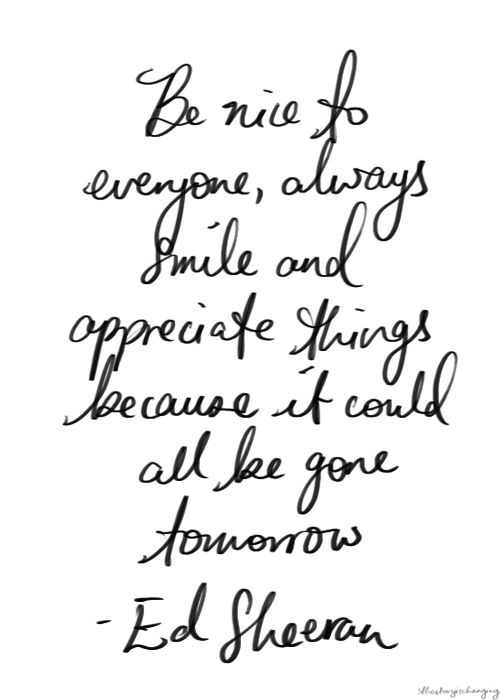 Be nice to
everyone, always
smile and
appreciate things
because it could
all be gone
tomorrow
- Ed Sheeran
thestoryischanging